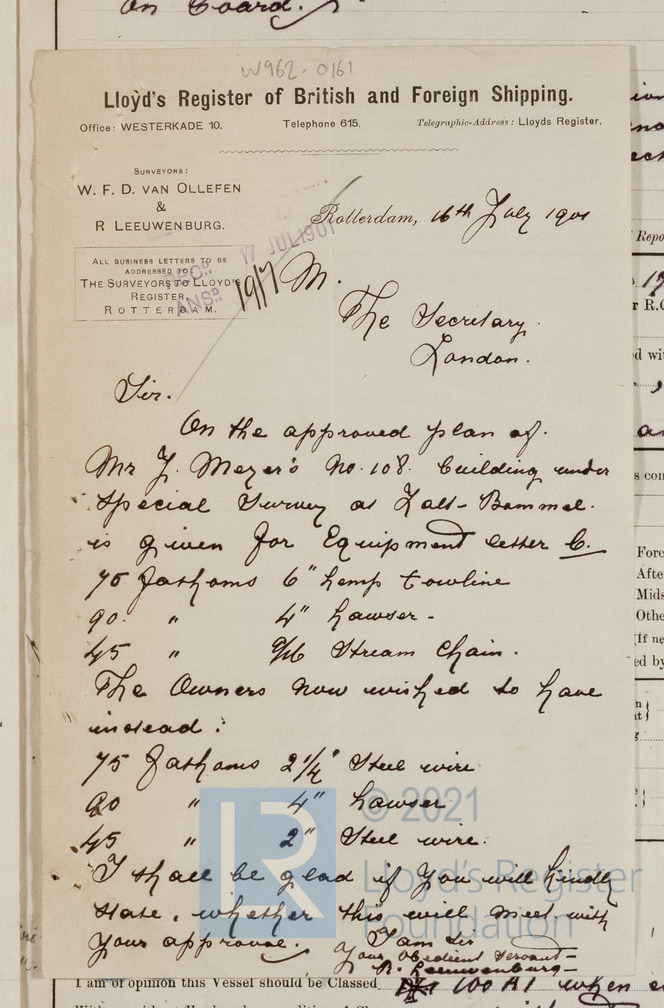 on board.
W962-0161
Lloyd's Register of British and Foreign Shipping.
Office: WESTERKADE 10. Telephone 615. Telegraphic-Address: Lloyds Register.
SURVEYORS:
W. F. D. VAN OLLEFEN
&
R LEEUWENBURG.
ALL BUSINESS LETTERS TO BE
ADDRESSED TO:
THE SURVEYORS TO LLOYD'S
REGISTER,
ROTTERDAM.
RECD 17 JUL 1901
ANSD 19/7 M.
Rotterdam, 16th July 1901
The Secretary.
London.
Sir.
On the approved plan of.
Mr J. Meyer's No. 108. building under
Special Survey at Zalt-Bommel.
is given for Equipment letter C.
75 fathoms 6" hemp towline
90. " 4" hawser-
45 " 9/16 Stream Chain.
The Owners now wished to have
instead:
75 fathoms 2 1/4" Steel wire
90 " 4" hawser
45 " 2" Steel wire.
I shall be glad if you will kindly
state, whether this will meet with
your approval.
I am Sir
Your Obedient Servant-
R. Leeuwenburg-
© 2021
Lloyd's Register
Foundation
I am of opinion this Vessel should be Classed 100 A1 when